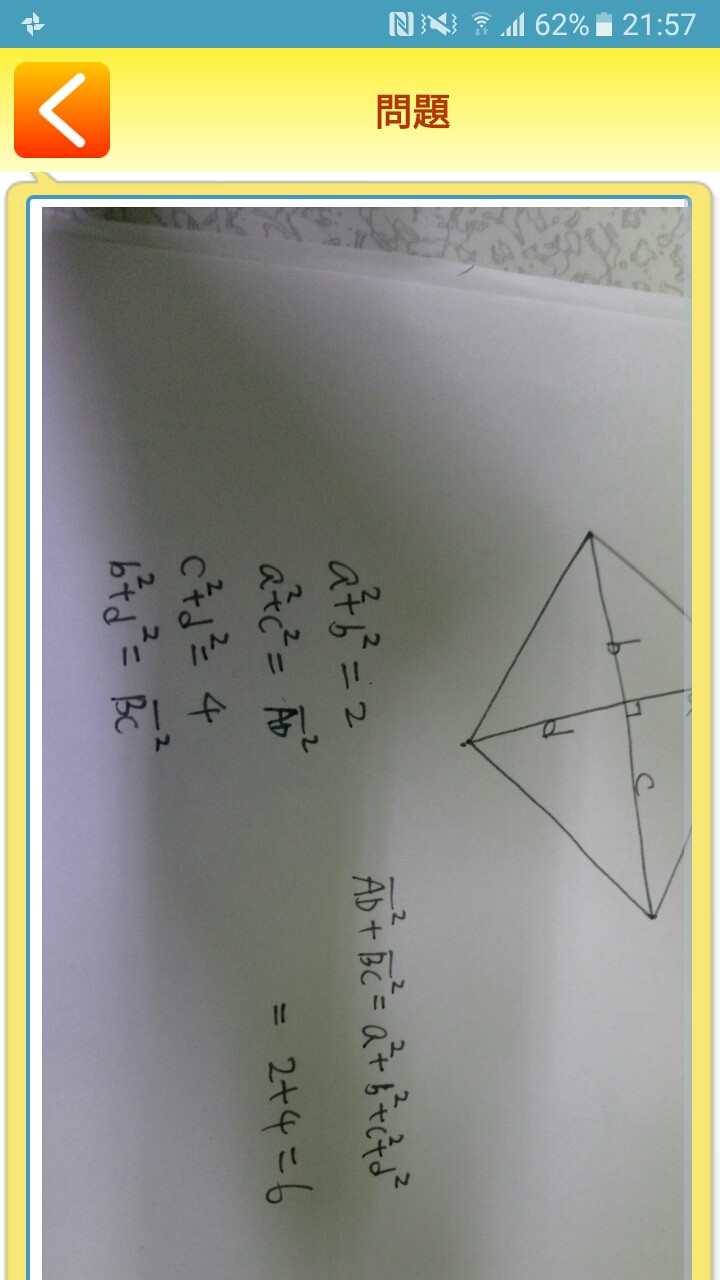 62% 21:57
問題
b
d
c
a²+b²=2
a²+c²=AD²
c²+d²=4
b²+d²=BC²
AD²+BC²=a²+b²+c²+d²
=2+4=6